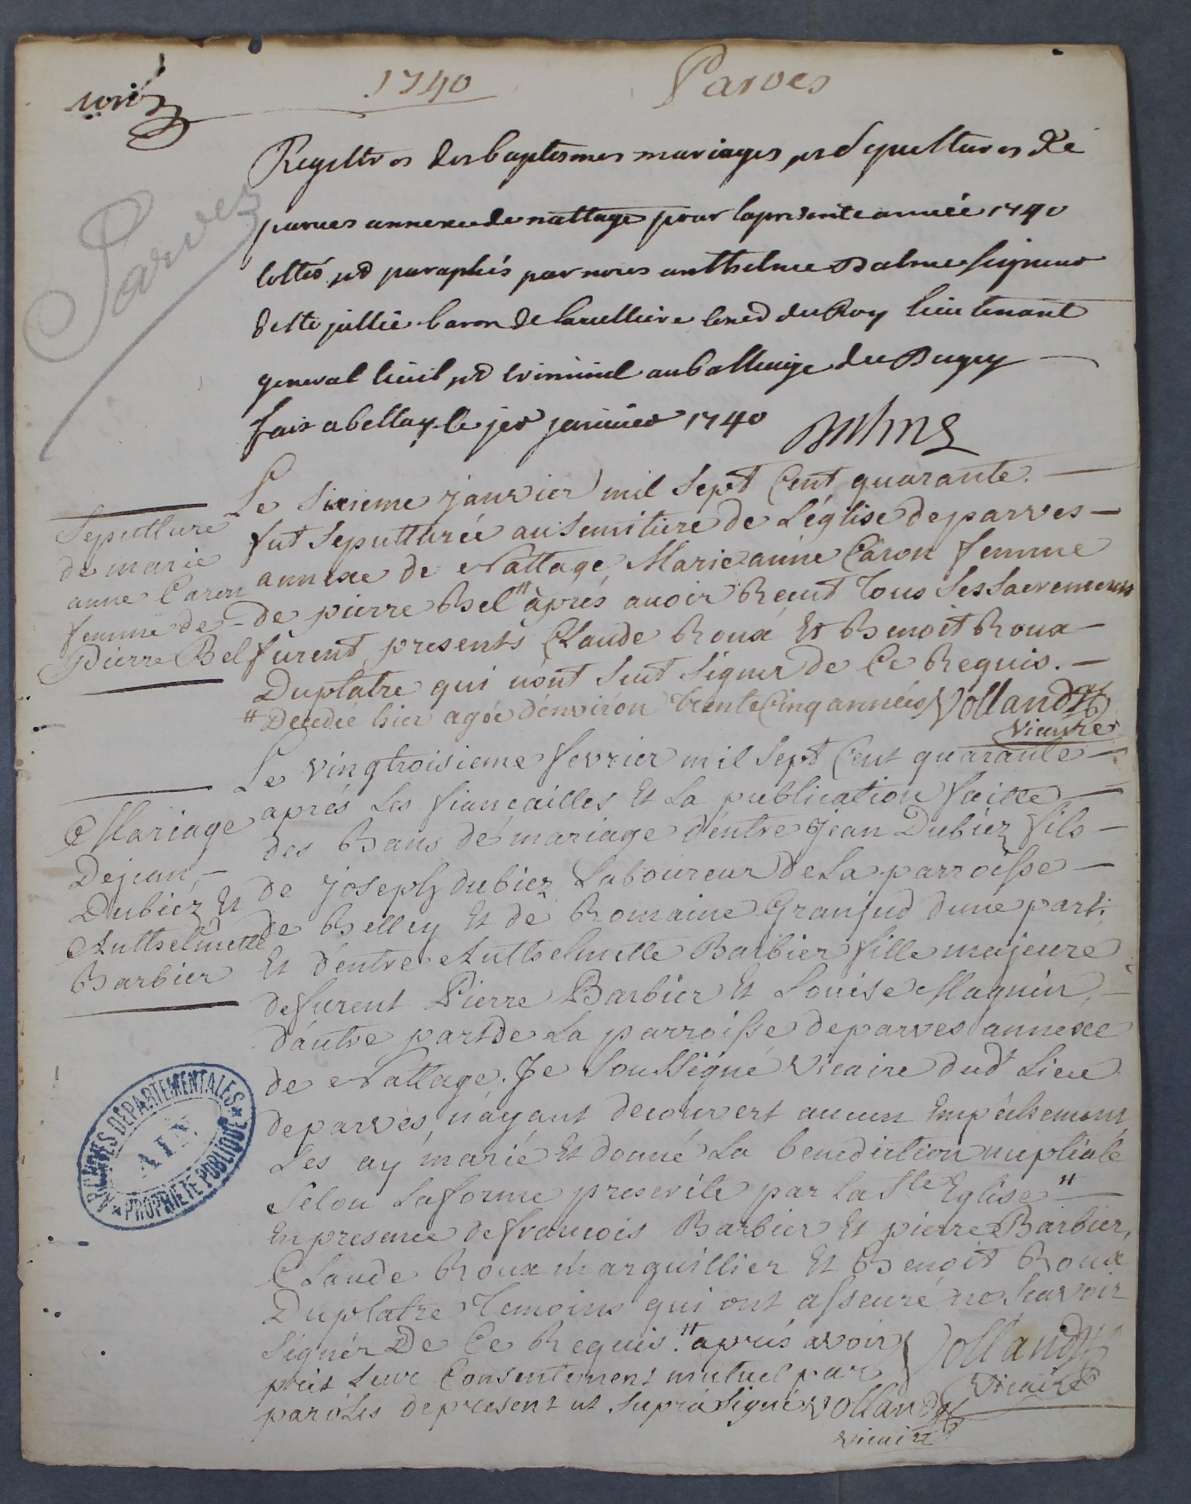 1740
Parves
Parves
Registres des baptesmes mariages et Sepultures de
parves annexe de nattage pour la presente année 1740
Cottés et paraphés par nous anthelme Balme Seigneur
de Ste jullie baron de Cons du Roy lieutenant
general Civil et criminel au balliage du Bugey
fait a bellay le jer janvier 1740
Balme
Sepulture
de marie
anne Caron
femme de
Pierre Bel
Le Sixieme janvier mil Sept Cent quarante.
fut Sepulturée au Semitiere de L'église de parves
annexe de Nattage Marie anne Caron femme
de pierre Bel # aprés avoir Receut Tous Ses Sacremens
furent presents Claude Roux Et Benoit Roux
Duplatre qui n'ont Seut Signer de Ce Requis.
# Decedée hier agée d'environ Trente Cinq années Vollandt
Vicaire
Mariage
De jean
Dubiez Et
Anthelmette
Barbier
Le vingtroisieme fevrier mil Sept Cent quarante
aprés Les fiançailles Et La publication faitte
des Bans de mariage d'entre Jean Dubiez fils
de joseph dubiez Laboureur de La parroisse
de Belley Et de Romaine Granjud d'une part.
Et d'entre Anthelmette Barbier fille majeure
de furent Pierre Barbier Et Louise Magnin,
d'autre part de La parroisse de parves annexe
de Nattage. Je Soussigné Vicaire dud Lieu
de parves, n'ayant decouvert aucun Empechement
Les ay marié Et donné La benediction nuptiale
Selon La forme prescrite par La Ste Eglise #
En presence de françois Barbier Et pierre Barbier,
Claude Roux Marguillier Et Benoit Roux
Duplatre Temoins qui ont asseuré ne Scavoir
Signer De Ce Requis. # aprés avoir
pris Leur Consentement mutuel par
paroles de present ut Supra Signé Vollandt
Vicaire
Vollandt
Vicaire
ARCHIVES DÉPARTEMENTALES
AIN
PROPRIÉTÉ PUBLIQUE